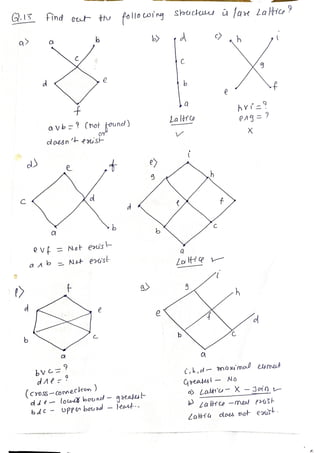 Q.13 Find out the following structures is/are Lattice?
a>
a b c d e f
a∨b = ? (not found)
or
doesn't exist
b>
d
c
b
a
Lattice
✓
c>
h i
g
e f
h∨i = ?
e∧g = ?
X
d>
e f
c d
a b
e∨f = Not exist
a∧b = Not exist
e>
i
g h
d e f
b c
a
Lattice ✓
f>
f
d e
b c
a
b∨c = ?
d∧e = ?
(cross-connection)
d&e - lower bound - greatest
b&c - upper bound - least..
g>
i
g h
e d
b c
a
i,h,d - maximal element
Greatest - No
a) Lattice - X - Join ✓
b) Lattice - meet exist
Lattice does not exist.